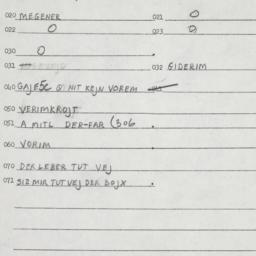 020 MEGENER 021 O
022 O 023 O
030 O
031 032 GIDERIM
040 GAJESC GI HIT KEJN VOREM
050 VERIMKROJT
051 A MITL DER-FAR (306
060 VORIM
070 DER LEBER TUT VEJ
071 SIZ MIR TUT VEJ DER BOJX